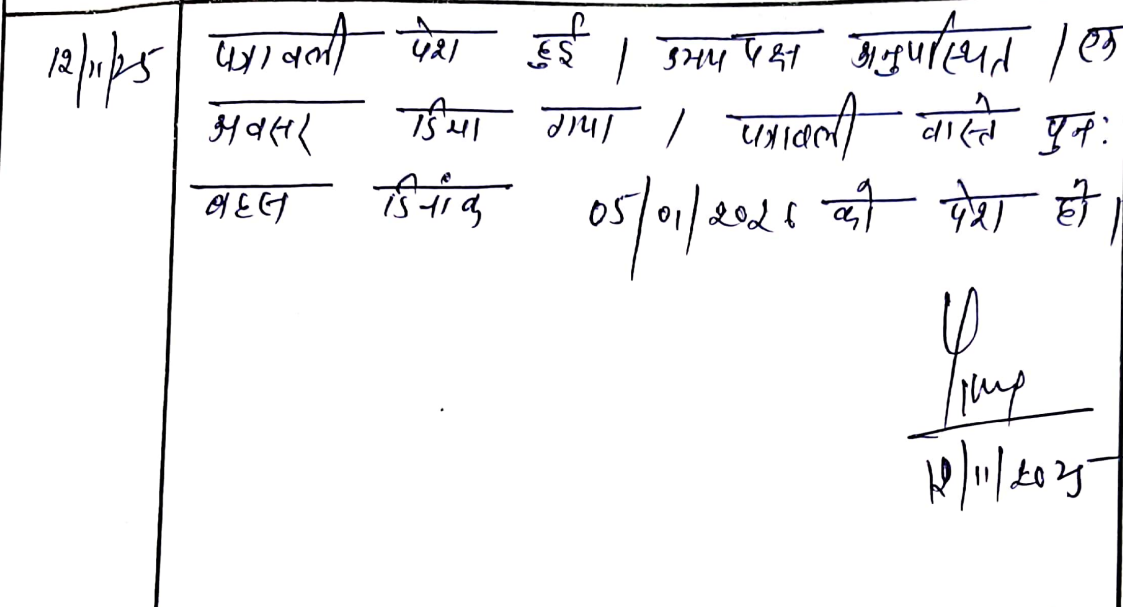 12/11/25 पत्रावली पेश हुई । उभय पक्ष अनुपस्थित । एक
अवसर दिया गया । पत्रावली वास्ते पुनः
बहस दिनांक 05/01/2026 को पेश हो ।
12/11/2025